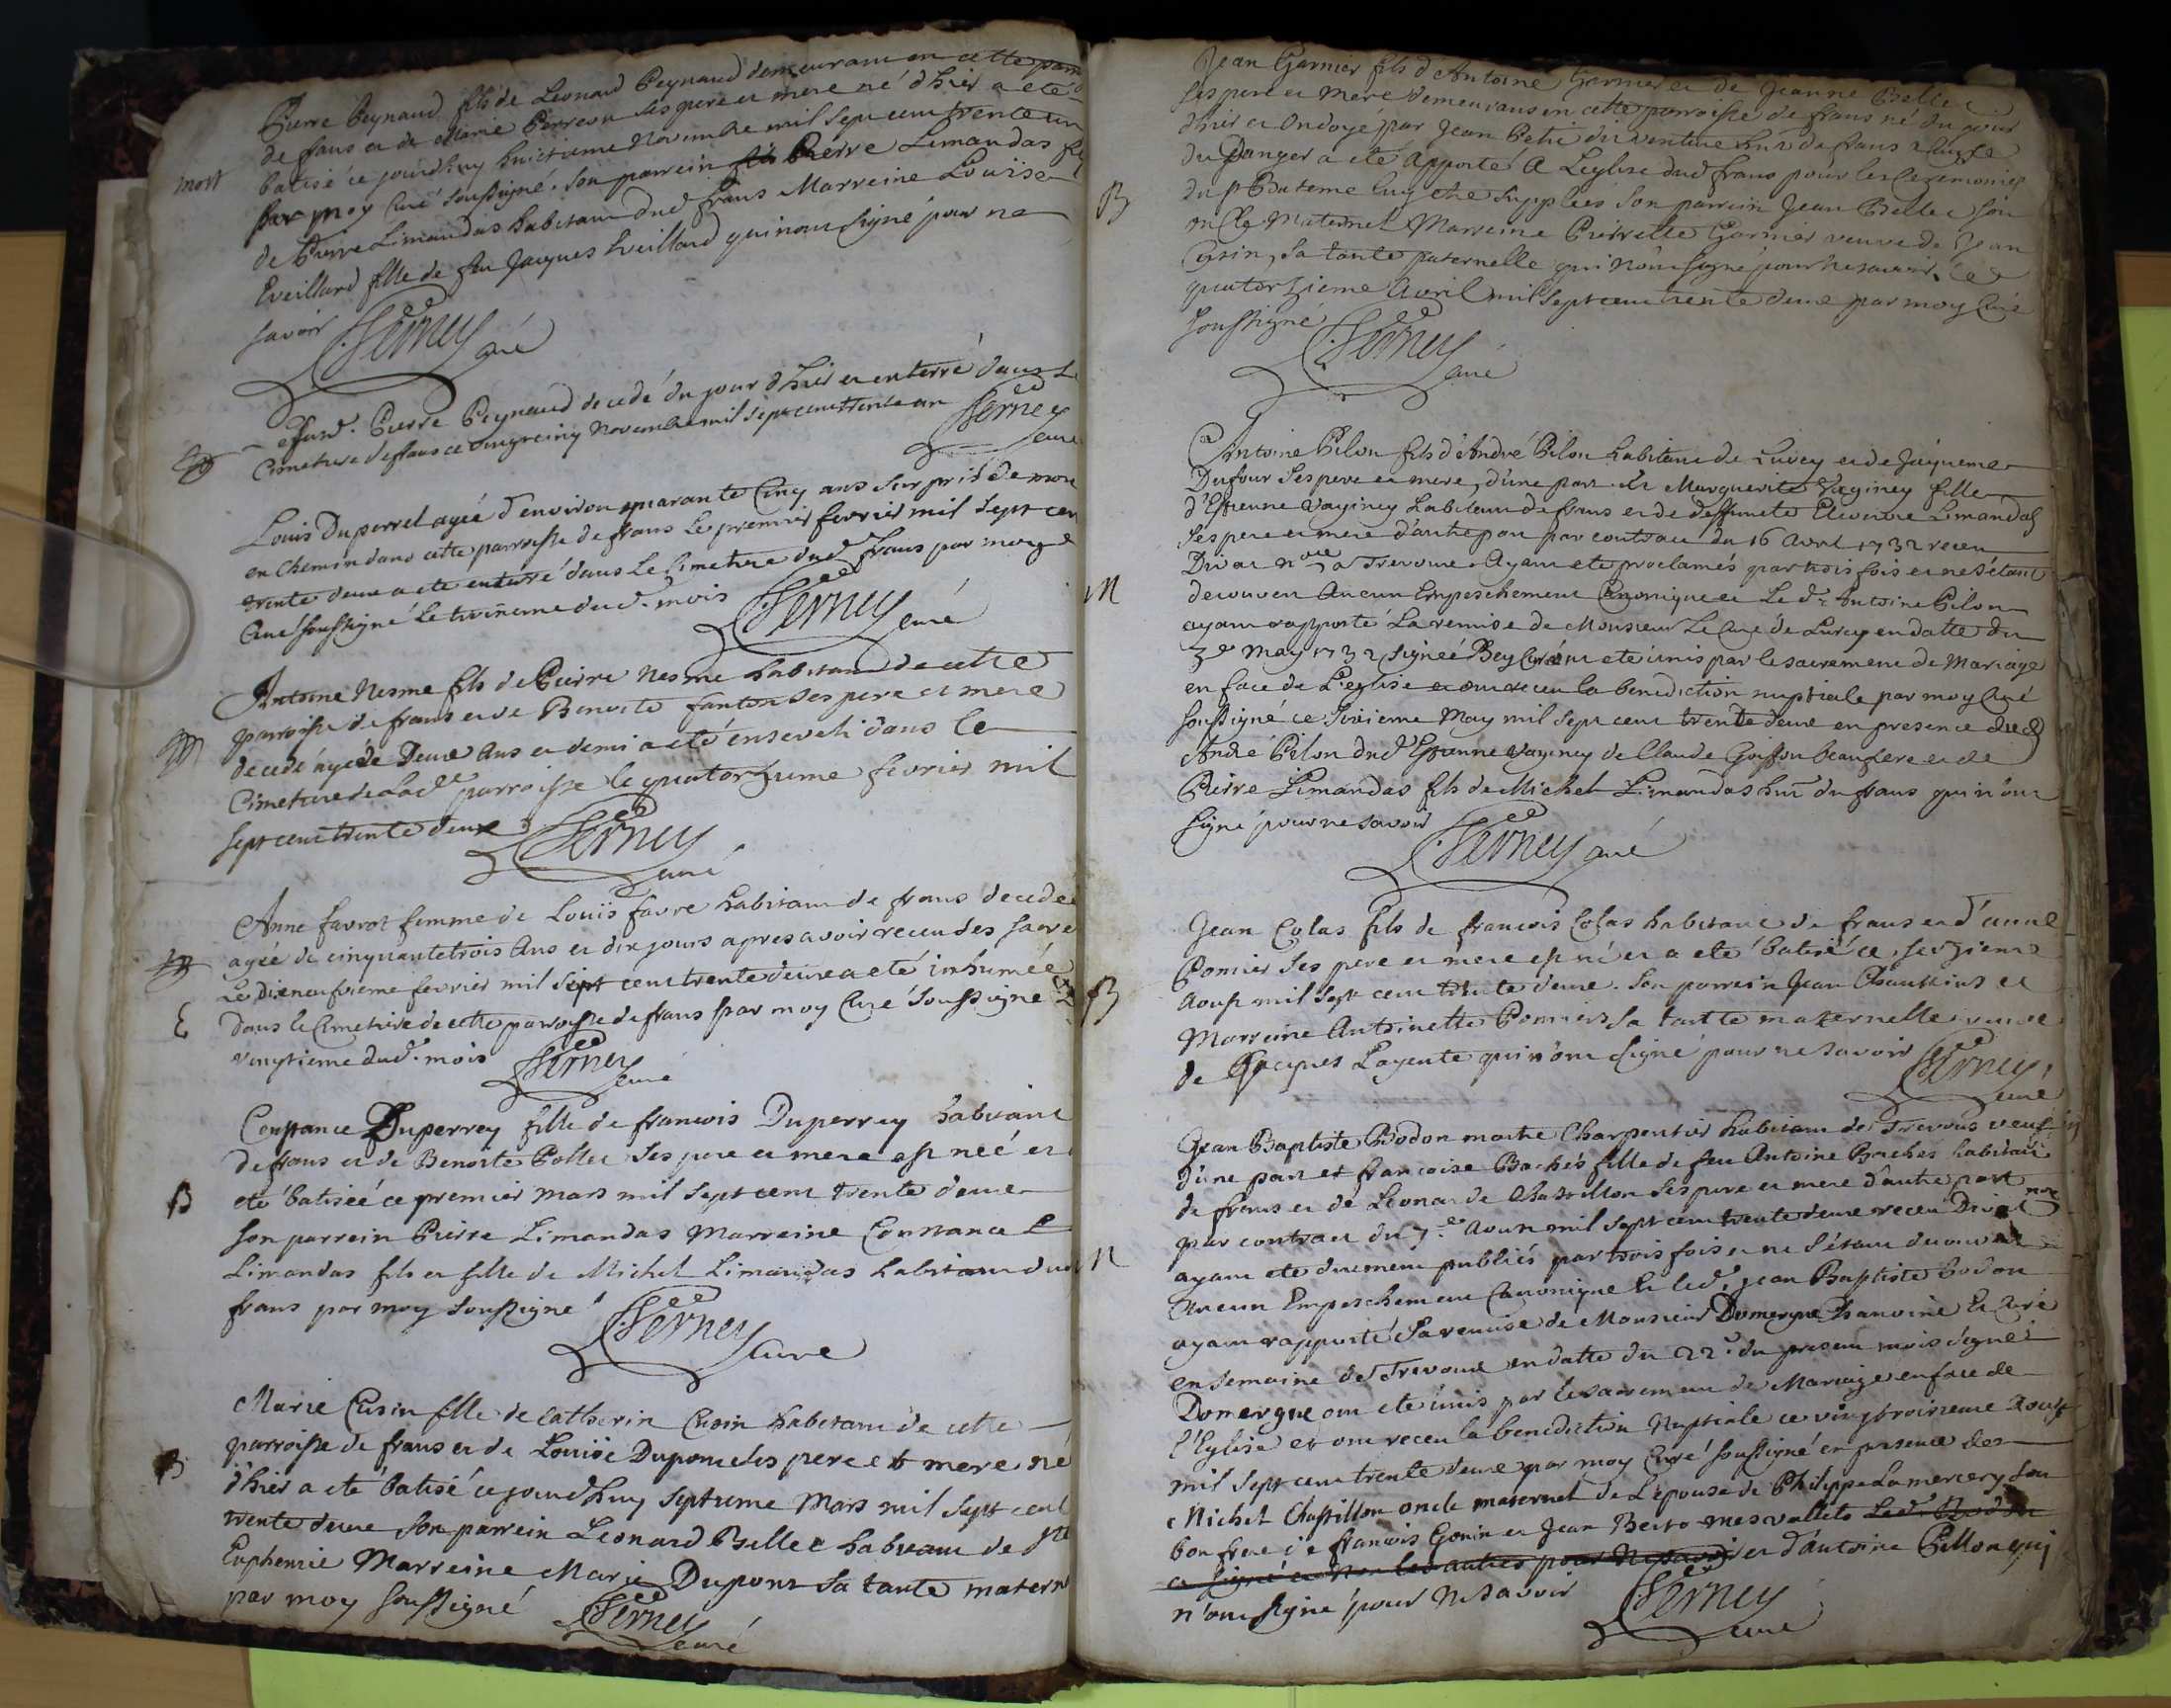 Pierre Peynaud fils de Leonard Peynaud demeurant en cette parr
de frans et de Marie Perreon ses pere et mere né d'hier a eté
batisé ce jourdhuy huictieme Novembre mil sept cent trente un
par moy Curé soussigné. son parrein Pierre Limandas fils
de Pierre Limandas habitant dud frans Marreine Louise
Eveillard fille de feu Jacques Eveillard qui nont signé pour ne
savoir
Cferney
curé
mort
Pierre Peynaud decedé du jour d'hier et enterré dans le
Cimetiere de frans ce vingtcinq Novembre mil sept cent trente un
Cferney
curé
Louis Duperret agée d'environ quarante Cinq ans surpris de mort
en chemin dans cette parroisse de frans Le premier fevrier mil sept cen
trente deux a eté enterré dans Le Cimetiere dud frans par moy
Curé soussigné Le troisieme dud. mois
Cferney
curé
Antoine Nesme fils de Pierre Nesme habitant de cette
parroisse de frans et de Benoite fanton ses pere et mere
decedé agé de Deux ans et demi a eté enseveli dans le
Cimetiere de Lade parroisse le quatorzieme fevrier mil
sept cent trente deux
Cferney
curé
Anne favrot femme de Louis favre habitant de frans decedée
agée de cinquantetrois Ans et dix jours apres avoir receu des sacre
Le Dixneufvieme fevrier mil sept cent trente deux a eté inhumée
Dans le Cimetiere de cette parroisse de frans par moy Curé soussigné
vingtieme dud. mois
Cferney
curé
Constance Duperrey fille de francois Duperrey habitant
de frans et de Benoite Pollet ses pere et mere est née et
eté batisée ce premier Mars mil sept cent trente deux
son parrein Pierre Limandas Marreine Constance
Limandas fils et fille de Michel Limandas habitant dud
frans par moy soussigné
Cferney
Curé
B
Marie Cusin fille de Catherin Cusin habitant de cette
parroisse de frans et de Louise Dupont ses pere et mere né
d'hier a eté batisé ce jourdhuy septieme Mars mil sept cent
trente deux son parrein Leonard Bellet habitant de Ste
Euphemie Marreine Marie Dupont sa tante matern
par moy soussigné
Cferney
curé
B
Jean Garnier fils d'Antoine Garnier et de Jeanne Bellet
ses pere et Mere demeurans en cette parroisse de frans né du jour
d'hier et Ondoyé par Jean Petit hnt de frans a cause
du Danger a eté Apporté A L'eglise dud frans pour les Ceremonies
du st Bateme luy etre supplées son parrein Jean Bellet son
oncle Maternel Marreine Pierrette Garnier veuve de Jean
Cusin, sa tante paternelle qui n'ont signé pour ne savoir. Ce
quatorzieme Avril mil sept cent trente deux par moy Curé
soussigné
Cferney
curé
B
Antoine Pilon fils d'André Pilon habitant de Lurcy et de Jaqueme
Dufour ses pere et mere, d'une part. Et Marguerite Vaginey fille
d'Estienne Vaginey habitant de frans et de deffuncte Limandas
ses pere et mere d'autre part par contract du 16 Avril 1732 receu
Divat nore a Trevoux. Ayant eté proclamés par trois fois et ne s'étant
decouvert Aucun Empeschement Canonique et Le dt Antoine Pilon
ayant rapporté La remise de Monsieur Le Curé de Lurcy en datte du
3e May 1732 signée Bey Curé ont eté unis par le sacrement de Mariage
en face de L'eglise et ont receu la benediction nuptiale par moy Curé
soussigné ce sixieme May mil sept cent trente deux en presence dud
André Pilon dud Estienne Vaginey de Claude Goiffon beaufrere et de
Pierre Limandas fils de Michel Limandas hnt du frans qui n'ont
signé pour ne savoir
Cferney curé
M
Jean Colas fils de francois Colas habitant de frans et d'anne
Pomier ses pere et mere est né et a eté batisé ce seizieme
Aoust mil sept cent trente deux. son parrein Jean et
Marreine Antoinette Pomiers sa tante maternelle veuve
de Jacques Lagente qui n'ont signé pour ne savoir
Cferney
curé
B
Jean Baptiste Bodon maitre Charpentier habitant de Trevoux veuf
d'une part et francoise Bachés fille de feu Antoine Baches habitant
de frans et de Leonarde Chastillon ses pere et mere d'autre part
par contract du 7.e Aoust mil sept cent trente deux receu Divat nore
ayant eté duement publiés par trois fois et ne s'étant decouvert
Aucun Empeschement Canonique Et led. jean Baptiste Bodon
ayant rapporté La remise de Monsieur Domergue Chanoine Et Curé
en semaine de Trevoux en datte du 22e du present mois signée
Domergue ont eté unis par le sacrement de Mariage en face de
l'Eglise et ont receu la benediction Nuptiale ce vingttroisieme Aoust
mil sept cent trente deux par moy Curé soussigné en presence de
Michel Chastillon oncle maternel de L'epouse de Philippe Lamercery son
bon frere de francois Gonin et Jean Berto mes vallets Led. Bodon
a signé et Non les autres pour Ne savoir et d'Antoine Pillon qui
n'ont signé pour Ne savoir
Cferney
curé